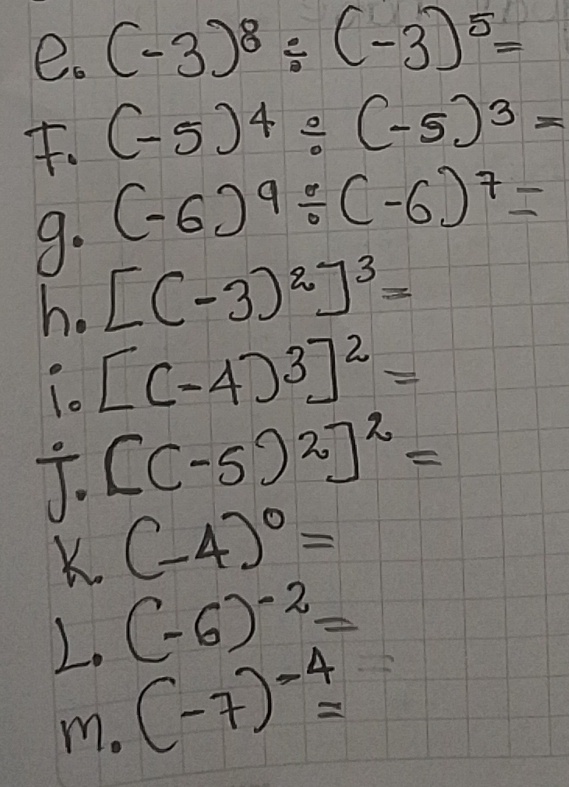 e. (-3)⁸ ÷ (-3)⁵=
f. (-5)⁴ ÷ (-5)³ =
g. (-6)⁹ ÷ (-6)⁷ =
h. [(-3)²]³ =
i. [(-4)³]² =
j. [(-5)²]² =
k. (-4)⁰ =
L. (-6)⁻² =
m. (-7)⁻⁴ =